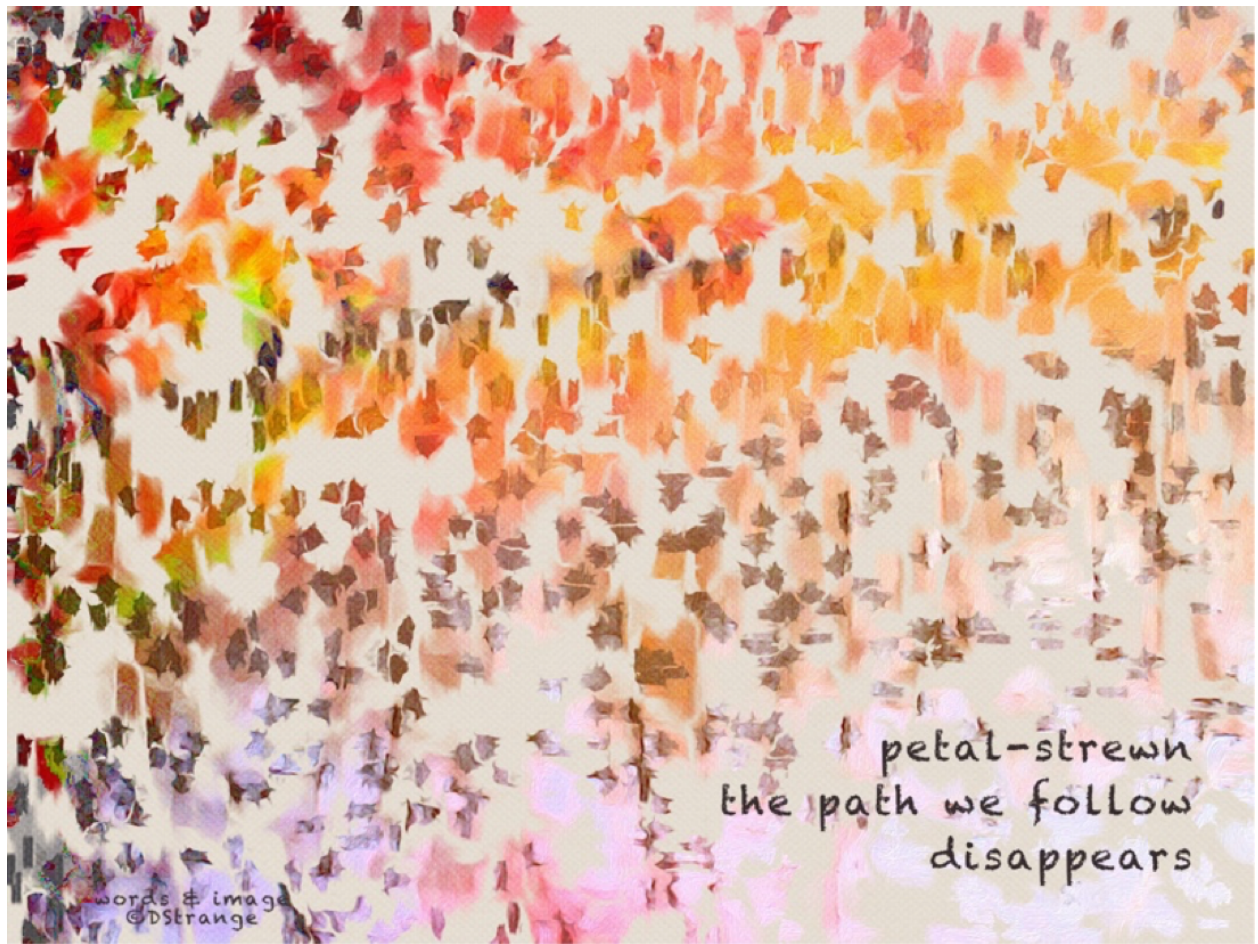 petal-strewn
the path we follow
disappears
words & image
©DStrange